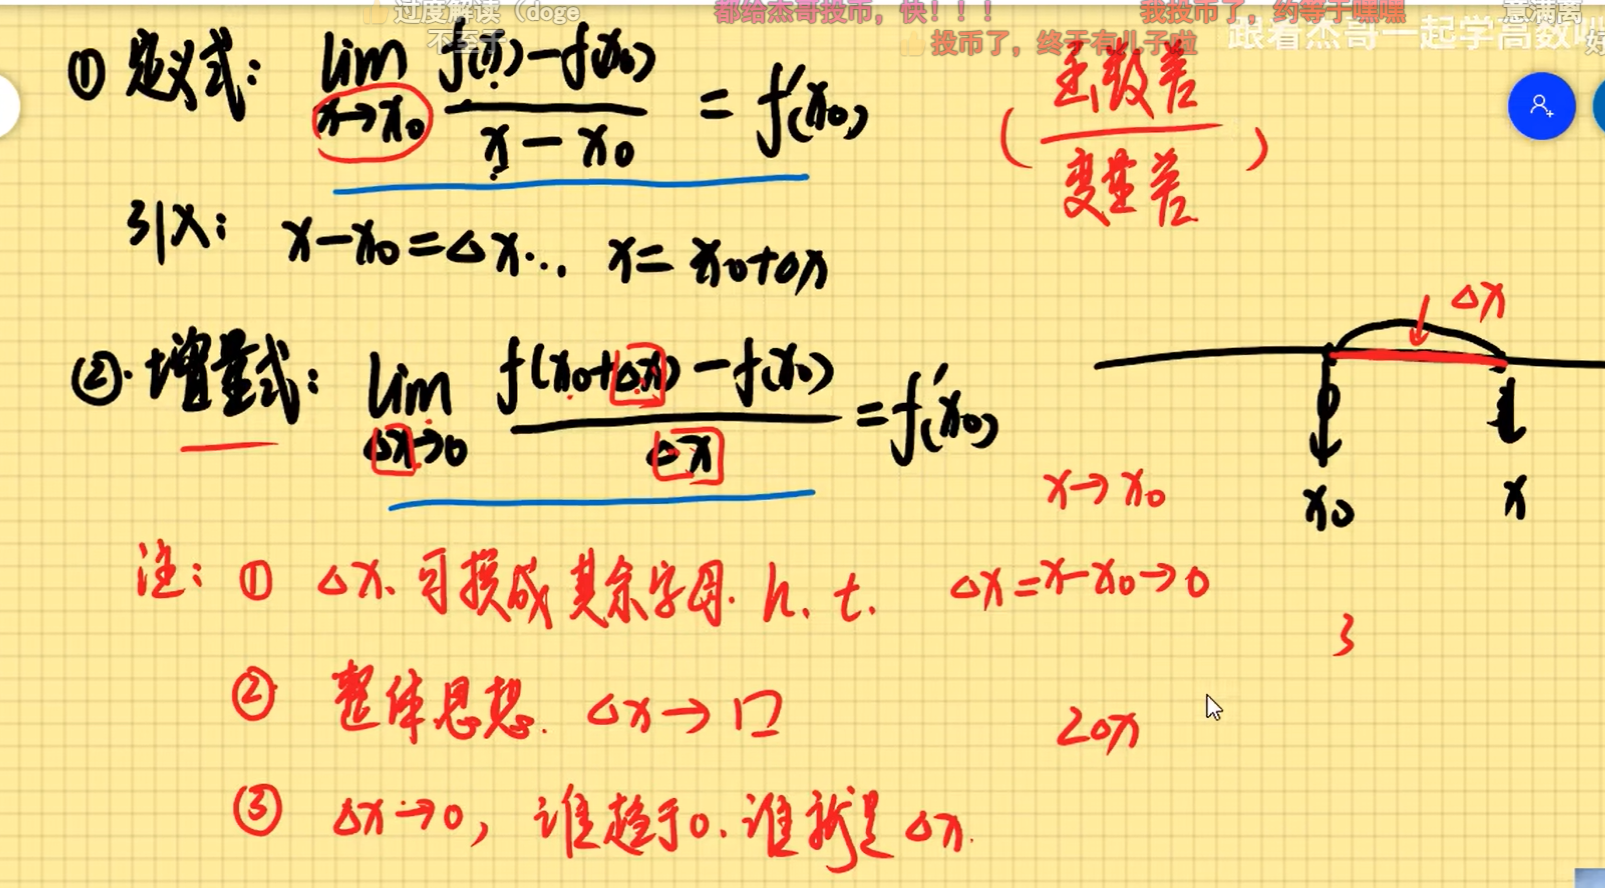 过度解读（doge
都给杰哥投币，快！！！
我投币了，约等于嘿嘿
意满离
不至于
投币了，终于有儿子啦
跟着杰哥一起学高数
① 定义式: lim x→x₀ f(x)−f(x₀) / x−x₀ = f′(x₀)
( 函数差 / 变量差 )
引入: x−x₀=△x… x= x₀+△x
△x
②. 增量式: lim △x→0 f(x₀+△x)−f(x₀) / △x = f′(x₀)
x₀ x
x→x₀
注: ① △x. 可换成其余字母. h. t.
△x=x−x₀→0
3
② 整体思想. △x→口
2△x
③ △x→0, 谁趋于0. 谁就是△x.